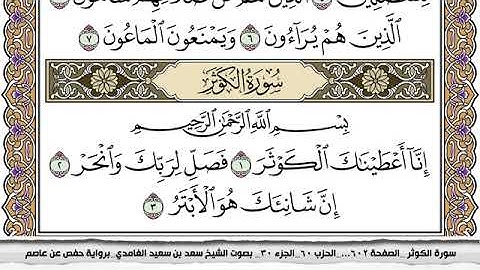 الَّذِينَ هُمْ يُرَآءُونَ ٦ وَيَمْنَعُونَ الْمَاعُونَ ٧
سُورَةُ الْكَوْثَرِ
بِسْمِ اللَّهِ الرَّحْمَٰنِ الرَّحِيمِ
إِنَّآ أَعْطَيْنَاكَ الْكَوْثَرَ ١ فَصَلِّ لِرَبِّكَ وَانْحَرْ ٢
إِنَّ شَانِئَكَ هُوَ الْأَبْتَرُ ٣
سورة الكوثر _الصفحة ٦٠٢..._الحزب ٦٠_الجزء ٣٠_ بصوت الشيخ سعد بن سعيد الغامدي_برواية حفص عن عاصم